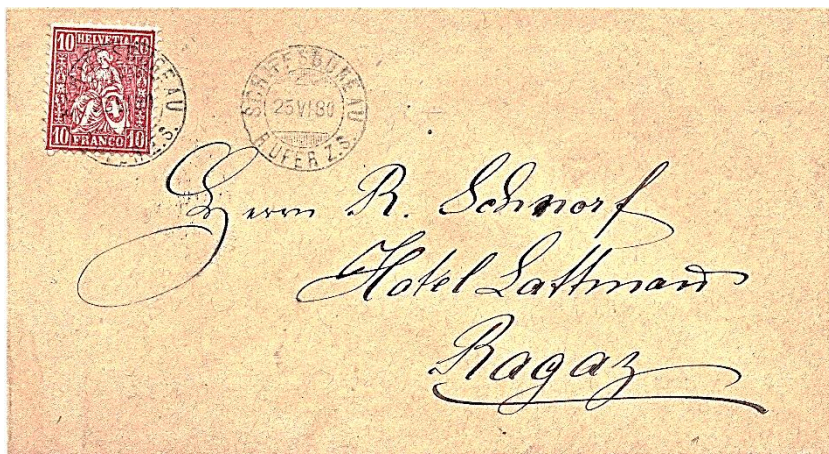 10 HELVETIA 10
10 FRANCO 10
SCHIFFSBUREAU
25 VI 80
RUFER Z.S.
Herrn R. Schnorf
Hotel Lattmann
Ragaz